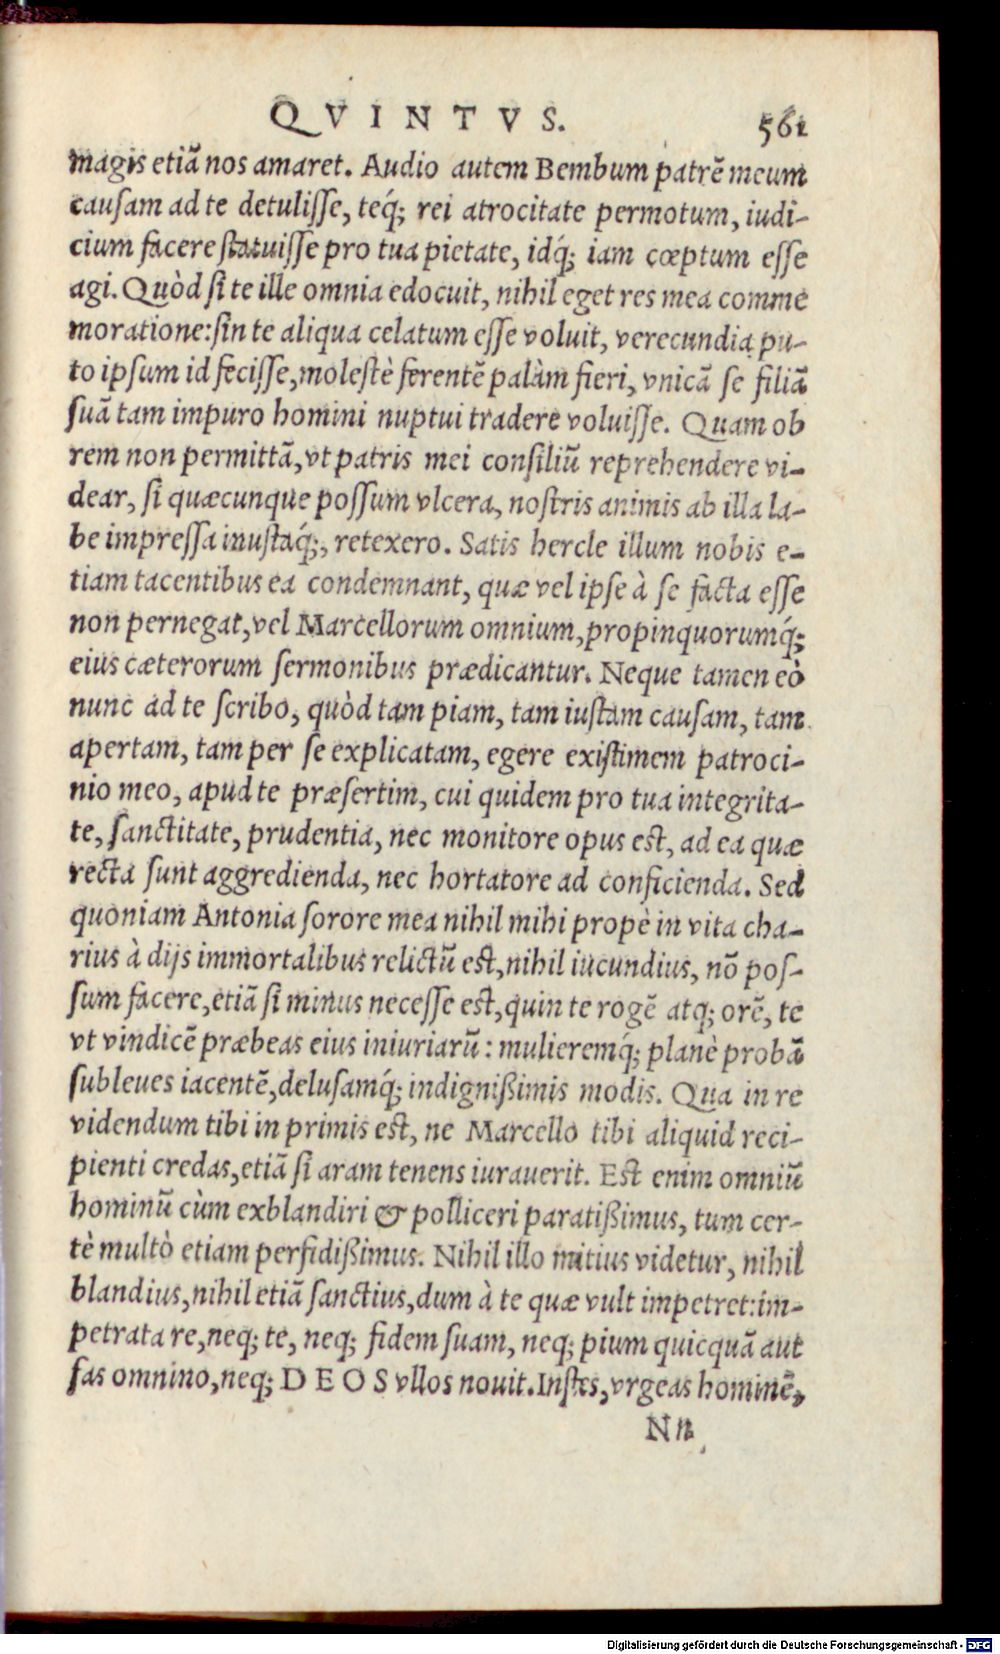 QVINTVS. 561
magis etiã nos amaret. Audio autem Bembum patrẽ meum
causam ad te detulisse, teq́; rei atrocitate permotum, iudi-
cium facere statuisse pro tua pietate, idq́; iam cœptum esse
agi. Quòd si te ille omnia edocuit, nihil eget res mea comme
moratione: sin te aliqua celatum esse voluit, verecundia pu-
to ipsum id fecisse, molestè ferentẽ palàm fieri, vnicã se filiã
suã tam impuro homini nuptui tradere voluisse. Quam ob
rem non permittã, vt patris mei consiliũ reprehendere vi-
dear, si quæcunque possum vlcera, nostris animis ab illa la-
be impressa inustaq́;, retexero. Satis hercle illum nobis e-
tiam tacentibus ea condemnant, quæ vel ipse à se facta esse
non pernegat, vel Marcellorum omnium, propinquorumq́;
eius cæterorum sermonibus prædicantur. Neque tamen eò
nunc ad te scribo, quòd tam piam, tam iustam causam, tam
apertam, tam per se explicatam, egere existimem patroci-
nio meo, apud te præsertim, cui quidem pro tua integrita-
te, sanctitate, prudentia, nec monitore opus est, ad ea quæ
recta sunt aggredienda, nec hortatore ad conficienda. Sed
quoniam Antonia sorore mea nihil mihi propè in vita cha-
rius à dijs immortalibus relictũ est, nihil iucundius, nõ pos-
sum facere, etiã si minus necesse est, quin te rogẽ atq; orẽ, te
vt vindicẽ præbeas eius iniuriarũ: mulieremq́; planè probã
subleues iacentẽ, delusamq́; indignißimis modis. Qua in re
videndum tibi in primis est, ne Marcello tibi aliquid reci-
pienti credas, etiã si aram tenens iurauerit. Est enim omniũ
hominũ cùm exblandiri & polliceri paratißimus, tum cer-
tè multò etiam perfidißimus. Nihil illo mitius videtur, nihil
blandius, nihil etiã sanctius, dum à te quæ vult impetret: im-
petrata re, neq; te, neq; fidem suam, neq; pium quicquã aut
fas omnino, neq; DEOS vllos nouit. Instes, vrgeas hominẽ,
Nn
Digitalisierung gefördert durch die Deutsche Forschungsgemeinschaft - DFG